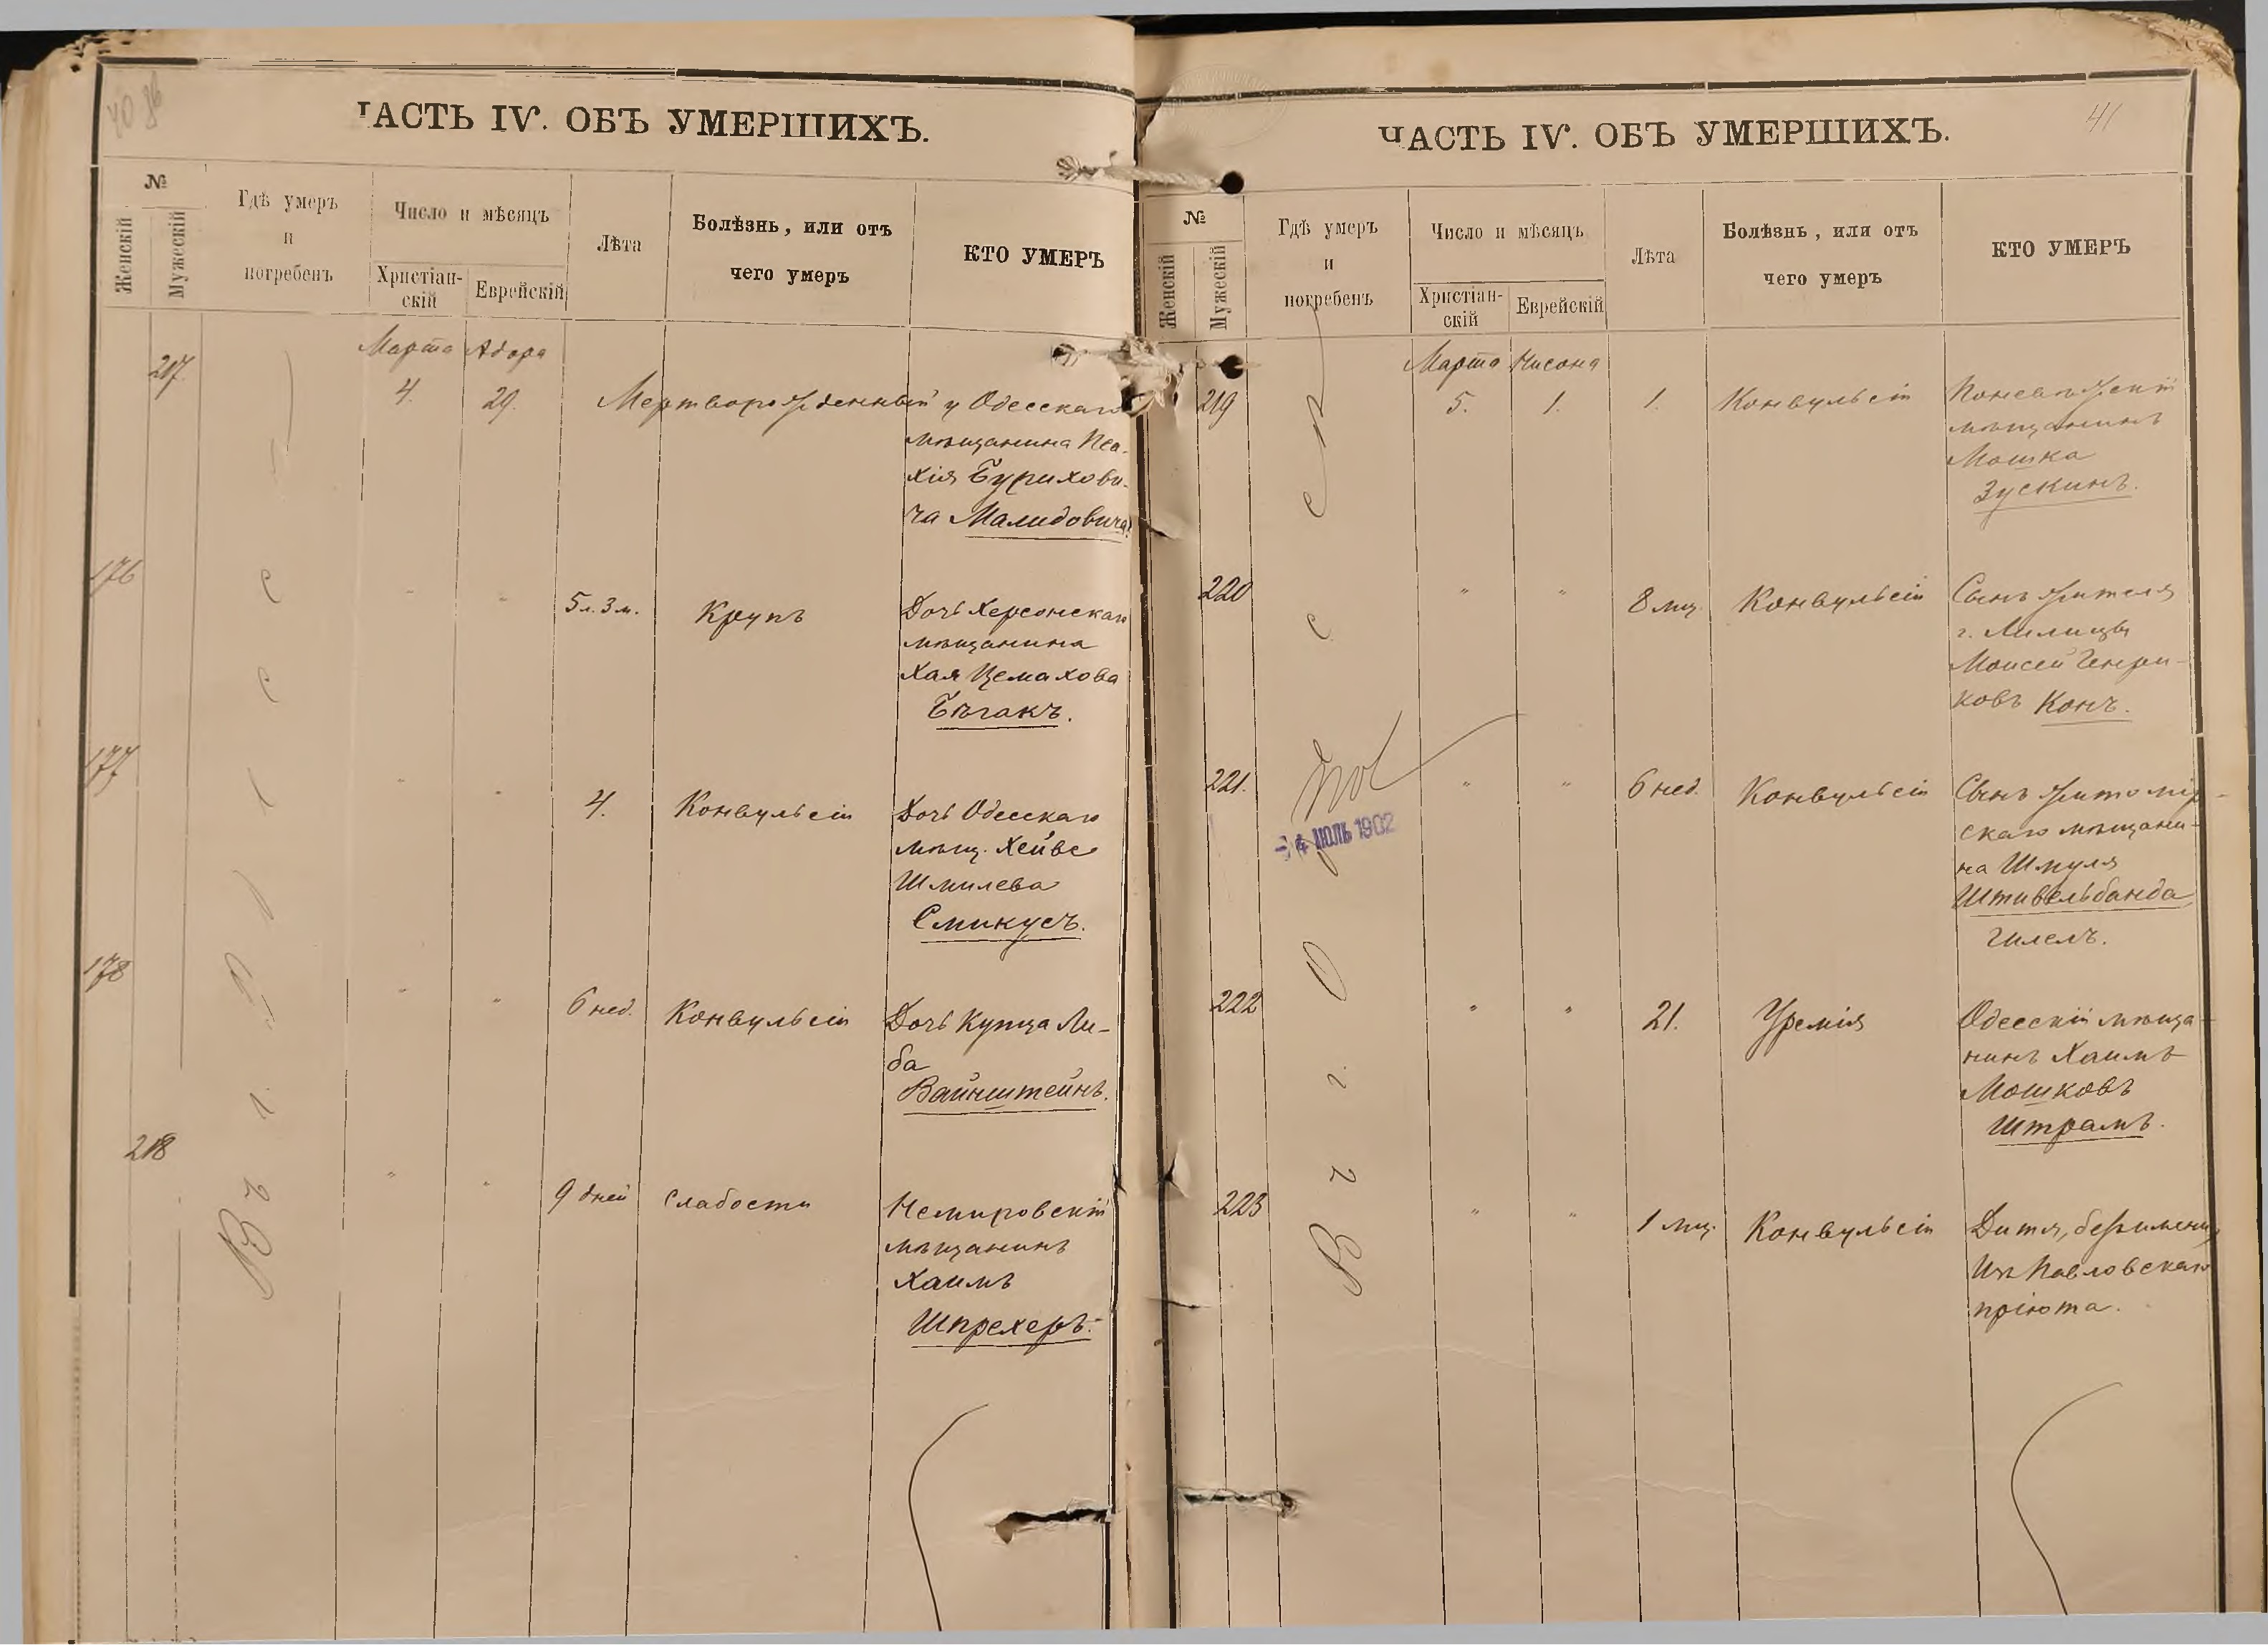 ЧАСТЬ IV. ОБЪ УМЕРШИХЪ.
№
Женскій
Мужескій
Гдѣ умеръ
и
погребенъ
Число и мѣсяцъ
Христіан-
скій
Еврейскій
Лѣта
Болѣзнь, или отъ
чего умеръ
КТО УМЕРЪ
Марта Адара
217. 4. 29. Мертворожденный у Одесскаго
мѣщанина
ча Малидовича.
176 " " 5 л. 3 м. Крупъ Дочь Херсонскаго
мѣщанина
Хая Цемахова
Бѣгакъ.
177 " " 4. Конвульсіи Дочь Одесскаго
мѣщ. Хейве
Шмилева
Смикусъ.
178 " " 6 нед. Конвульсіи Дочь Купца Ли-
ба
Вайнштейнъ.
218 " " 9 дней Слабости Немировскій
мѣщанинъ
Хаимъ
Шпрехеръ.
Въ г. Одессѣ
ЧАСТЬ IV. ОБЪ УМЕРШИХЪ.
41
№
Женскій
Мужескій
Гдѣ умеръ
и
погребенъ
Число и мѣсяцъ
Христіан-
скій
Еврейскій
Лѣта
Болѣзнь, или отъ
чего умеръ
КТО УМЕРЪ
Марта Нисона
219 5. 1. 1. Конвульсіи Поневѣжскій
мѣщанинъ
Мошка
Зускинъ.
220 " " 8 мц. Конвульсіи Сынъ жителя
г.
Моисей Генри-
ковъ Конъ.
221. " " 6 нед. Конвульсіи Сынъ житомір-
скаго мѣщани-
на Шмуля
Штивельбанда
Гилелъ.
4 ІЮЛЬ 1902
222 " " 21. Уремія Одесскій мѣща-
нинъ Хаимъ
Мошковъ
Штрамъ.
223 " " 1 мц. Конвульсіи Дитя,
Изъ Павловскаго
пріюта.
Въ г. Одессѣ